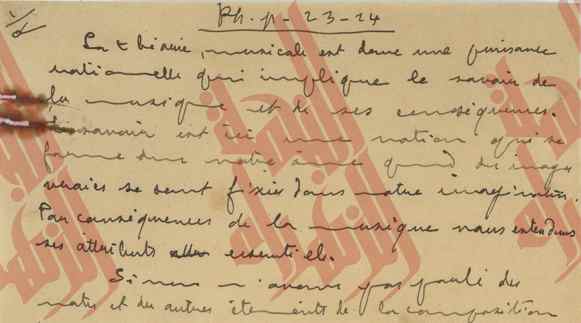 Ph. p - 23-24
La théorie musicale est donc une puissance
rationnelle qui implique le savoir de
la musique et de ses conséquences.
Le savoir est ici une notion qui se
forme dans notre âme quand des images
vraies se sont fixées dans notre imagination.
Par conséquences de la musique nous entendons
ses attributs essentiels.
Si nous n'avons pas parlé des
notes et des autres éléments de la composition